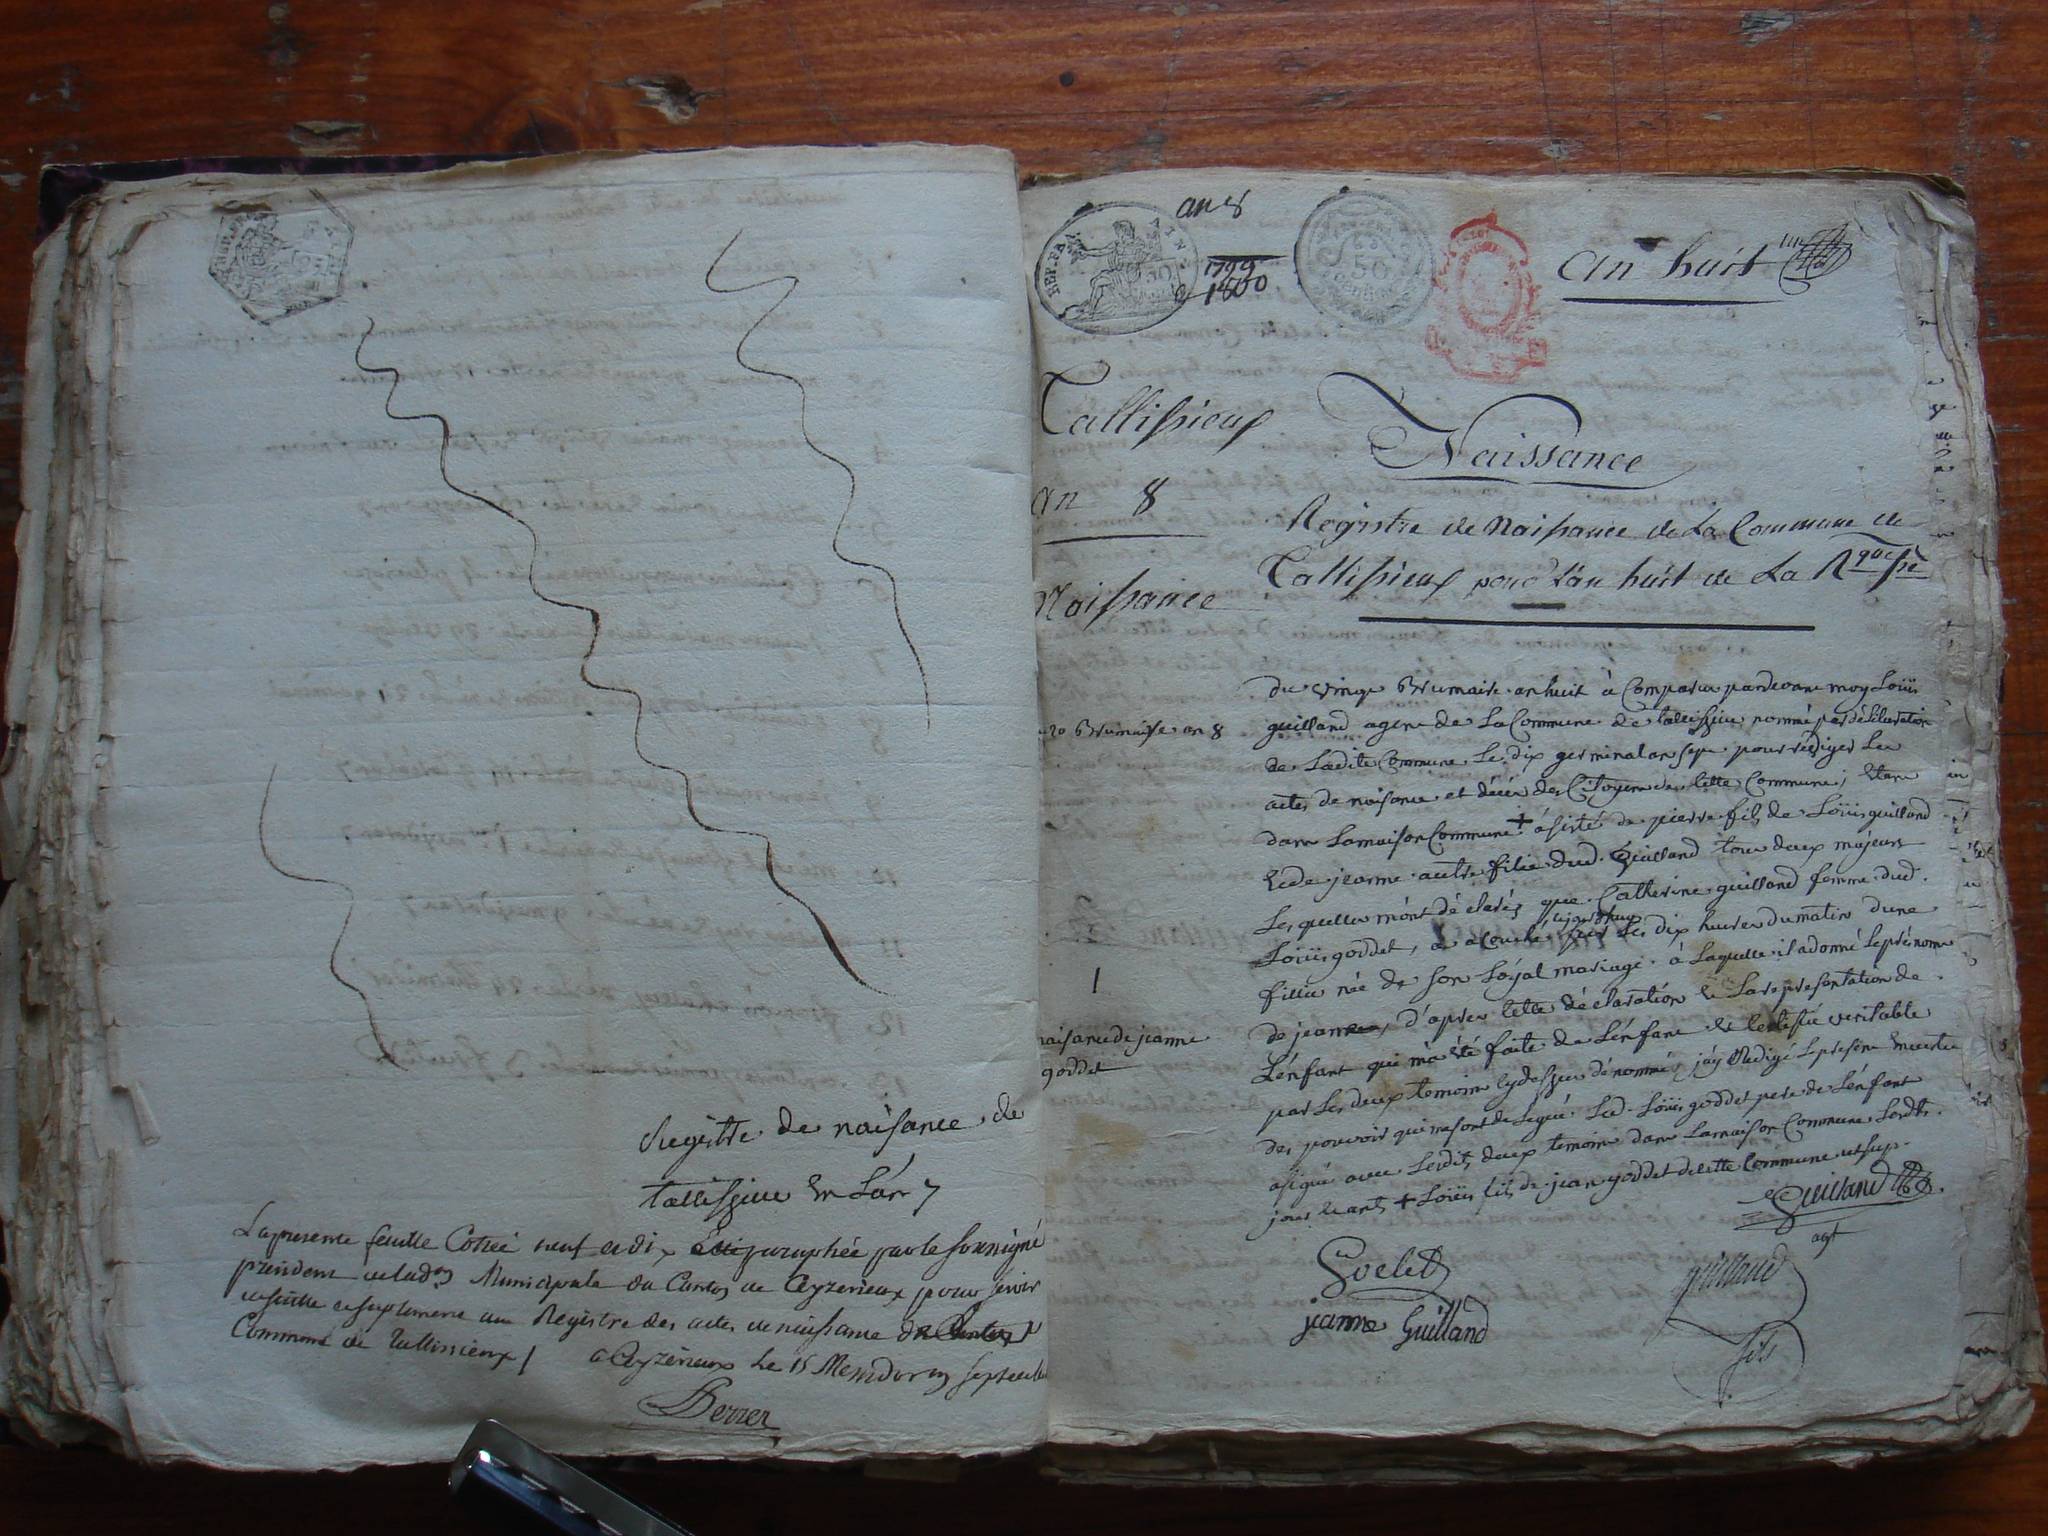 Registre de naisance de
tallissieu en L'an 7
La presente feuille Cottée neuf et dix paraphée par le soussigné
président de l'adon Municipale du Canton de Ceyzerieux pour servir
de feuille de suplement au Registre des actes de naissance de
Commune de Tallissieux / a Ceyzerieux le 15 Messidor an sept
an 8
REP. FRA
1799
& 1800
50
an huit
Tallissieux
an 8
Naissance
20 Brumaise an 8
1
naisance de jeanne
goddet
Naissance
Registre de Naissance de La Commune de
Tallissieux pour L'an huit de La Rque fse
du vingt Brumaire an huit à Comparu pardevant moy Loüis
guilland agent de La Commune de tallissieu nommé par déliberation
de Ladite Commune Le dix germinal an sept pour rédiger Les
actes de naisance et décés des Citoyens de cette Commune, Etant
dans La maison Commune + asisté de pierre fils de Loüis guilland
et de jeanne autre fillie dud. Guilland tous deux majeurs
Lesquelles m'ont déclarés que Catherine guilland femme dud.
Loüis goddet, a acouché aujourdhuy sur Les dix heures du matin d'une
fillie née de son Loyal mariage à Laquelle il a donné le prénom
de jeanne, d'apres cette déclaration et La representation de
L'énfant qui m'a été faite de L'énfant et Certifié veritable
par Les deux temoins cydessus dénommés, j'áy Redigé Le présent en vertu
des pouvoirs qui me sont délégué Led. Loüis goddet pere de L'énfant
a signé avec Lesdits deux temoins dans La maison Commune Lesdts.
jour et ant + Loüis fils de jean goddet de cette Commune ut sup.
Guilland
agt
Goddet
guilland
fils
jeanne Guilland